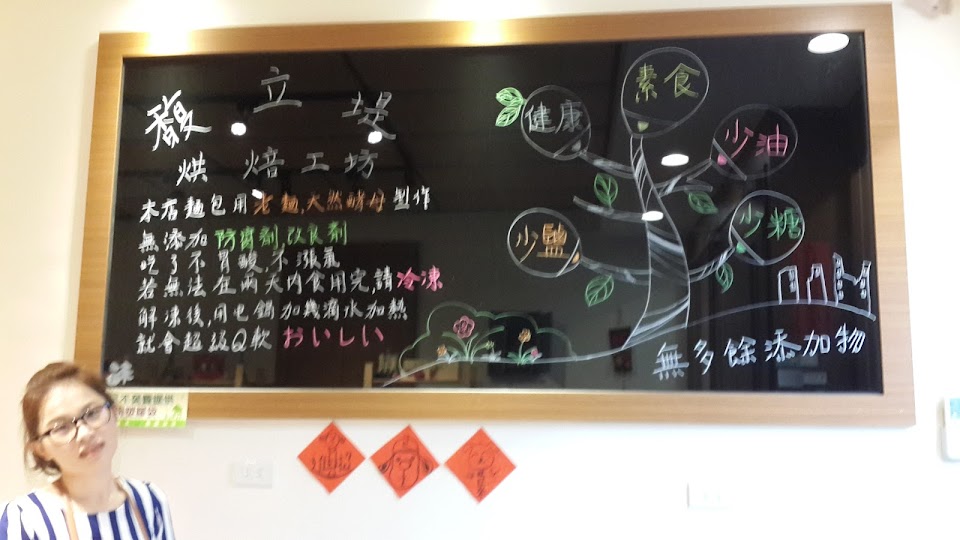 馥立堤
烘焙工坊
本店麵包用老麵,天然酵母製作
無添加防腐劑,改良劑
吃了不胃酸,不漲氣
若無法在兩天內食用完,請冷凍
解凍後,用电鍋加幾滴水加熱
就會超級Q軟 おいしい
健康
素食
少油
少鹽
少糖
無多餘添加物